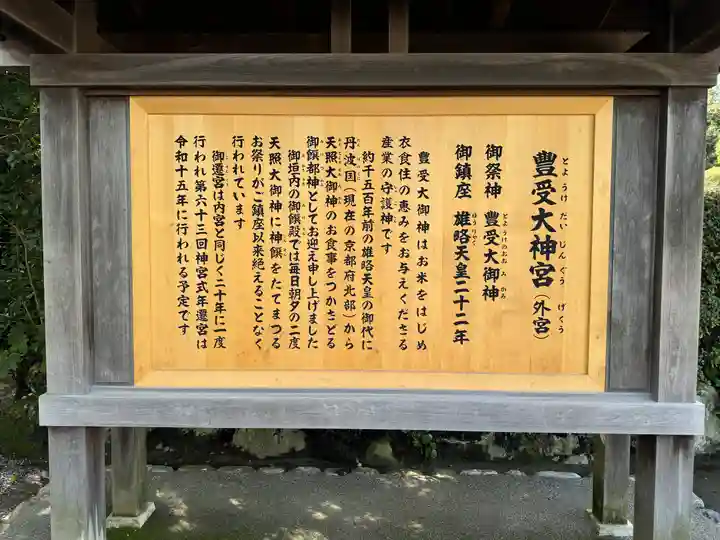 豊受大神宮（外宮）
とようけだいじんぐう　げくう
御祭神　豊受大御神
とようけのおおみかみ
御鎮座　雄略天皇二十二年
ゆうりゃく
豊受大御神はお米をはじめ
衣食住の恵みをお与えくださる
産業の守護神です
約千五百年前の雄略天皇の御代に
丹波国（現在の京都府北部）から
天照大御神のお食事をつかさどる
御饌都神としてお迎え申し上げました
御垣内の御饌殿では毎日朝夕の二度
天照大御神に神饌をたてまつる
お祭りがご鎮座以来絶えることなく
行われています
御遷宮は内宮と同じく二十年に一度
行われ第六十三回神宮式年遷宮は
令和十五年に行われる予定です